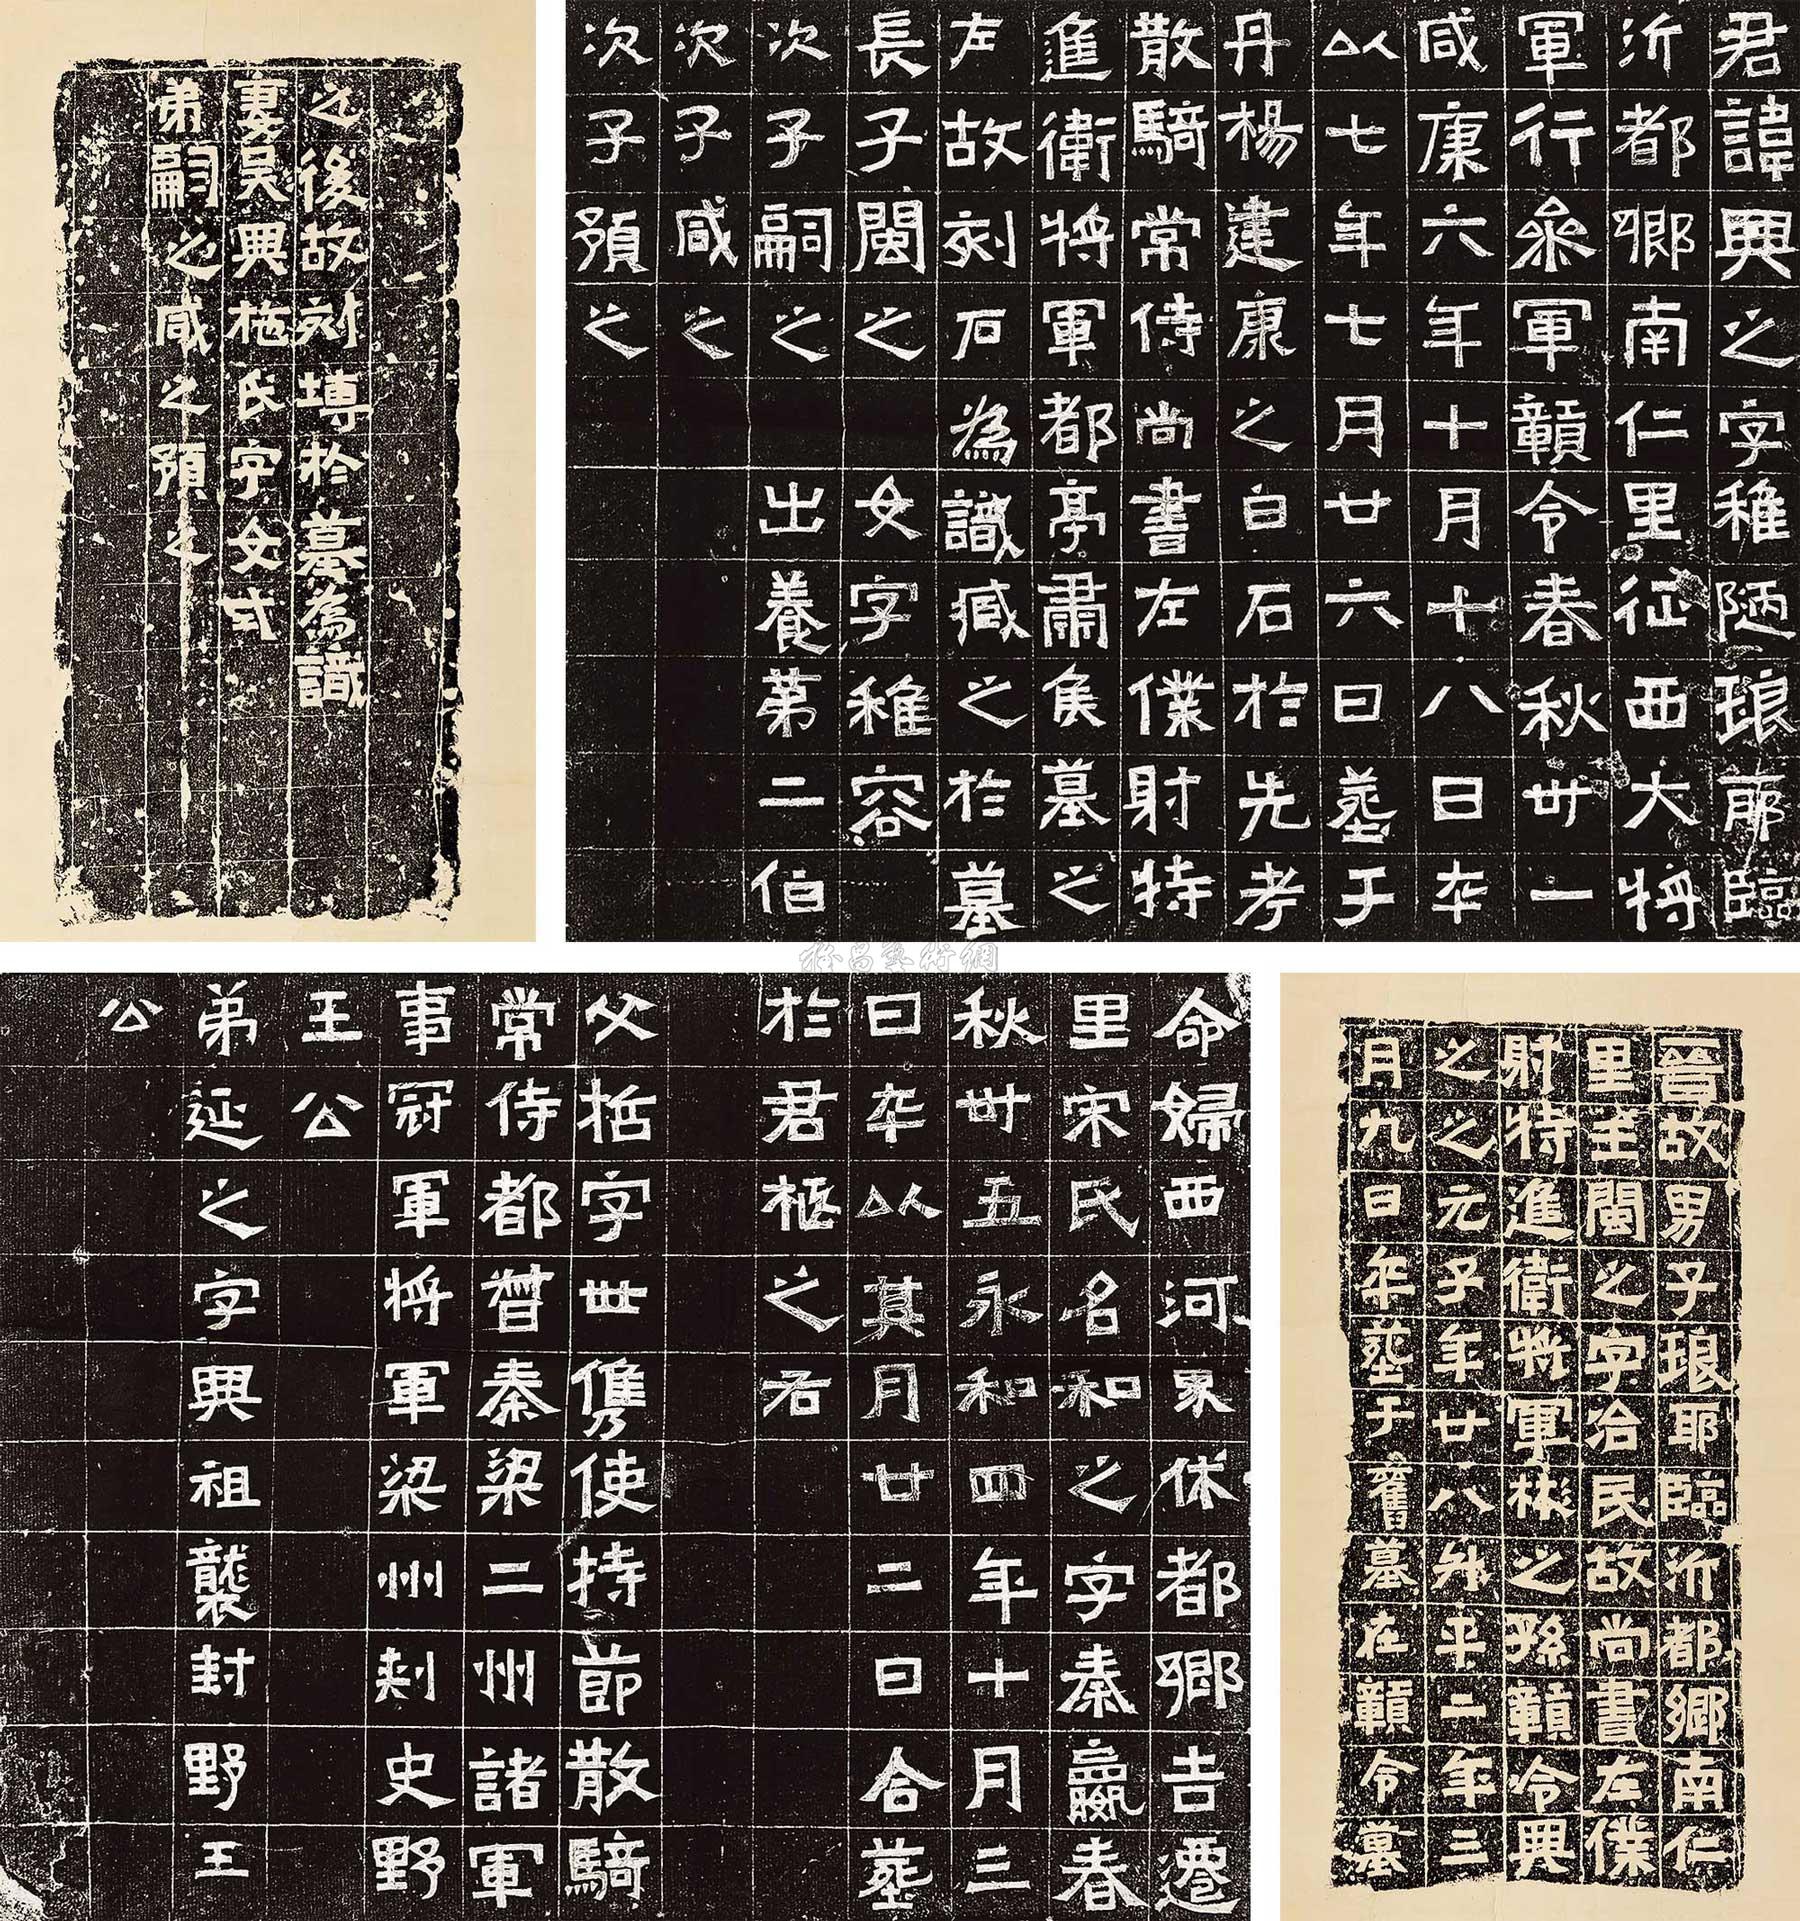 君諱興之字稚陋琅耶臨
沂都鄉南仁里征西大將
軍行參軍贛令春秋卅一
咸康六年十月十八日卒
以七年七月廿六日葬于
丹楊建康之白石於先考
散騎常侍尚書左僕射特
進衛將軍都亭肅侯墓之
左故刻石為識臧之於墓
長子閩之 女字稚容
次子嗣之 出養第二伯
次子咸之
次子預之
之後故刻塼於墓為識
妻吳興施氏字女式
弟嗣之咸之預之
晉故男子琅耶臨沂都鄉南仁
里王閩之字冶民故尚書左僕
射特進衛將軍彬之孫贛令興
之之元子年廿八升平二年三
月九日卒葬于舊墓在贛令墓
命婦西河界休都鄉吉遷
里宋氏名和之字秦嬴春
秋卅五永和四年十月三
日卒以其月廿二日合葬
於君柩之右
父哲字世儁使持節散騎
常侍都督秦梁二州諸軍
事冠軍將軍梁州刺史野
王公
弟延之字興祖襲封野王
公
雅昌藝術網